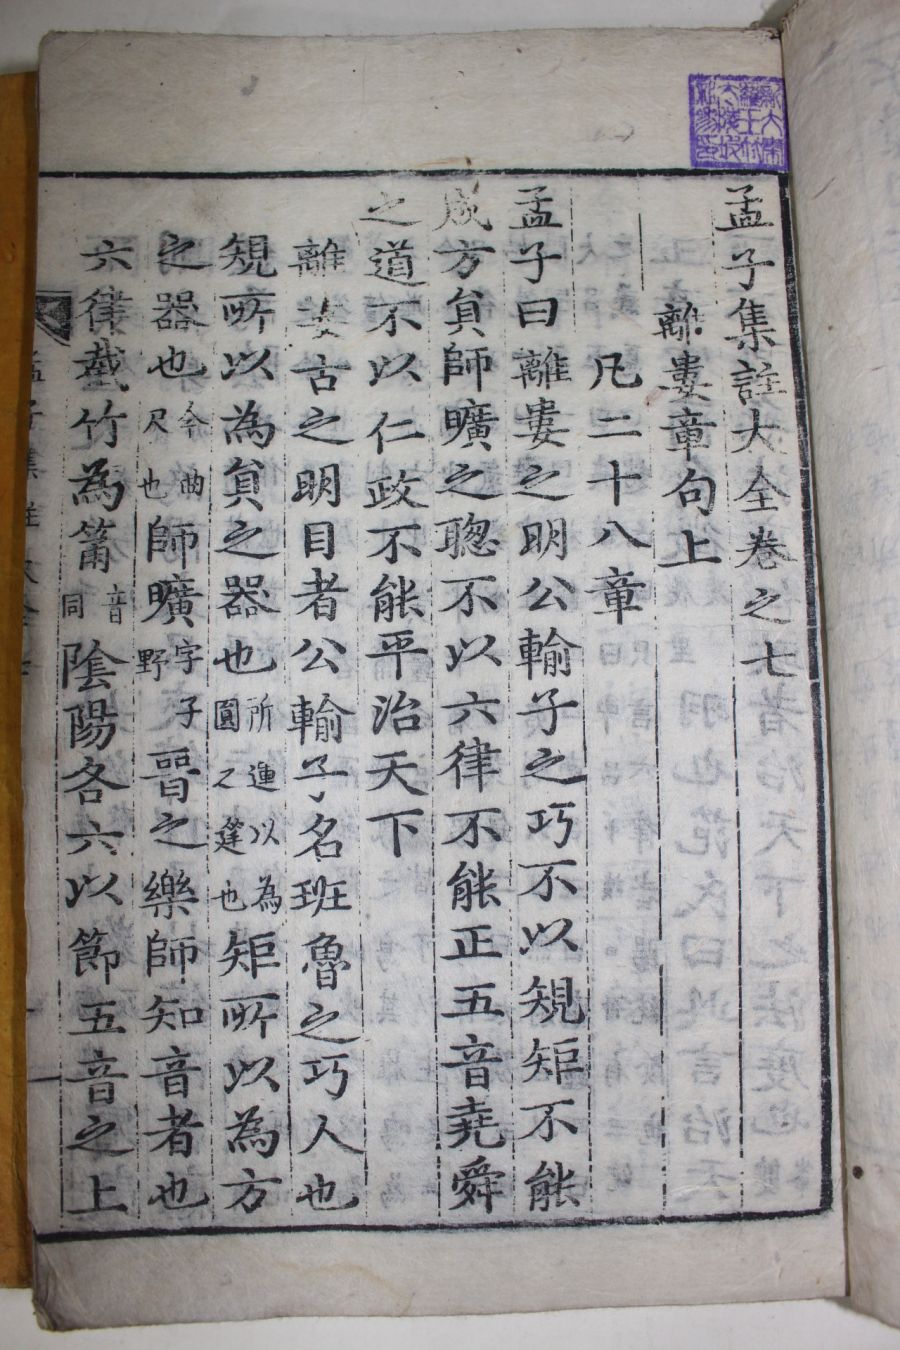 孟子集註大全卷之七
離婁章句上
凡二十八章
孟子曰離婁之明公輸子之巧不以規矩不能
成方員師曠之聰不以六律不能正五音堯舜
之道不以仁政不能平治天下
離婁古之明目者公輸子名班魯之巧人也
規所以為員之器也所運以為圓之筳也矩所以為方
之器也今曲尺也師曠字子野晉之樂師知音者也
六律截竹為筩音同陰陽各六以節五音之上